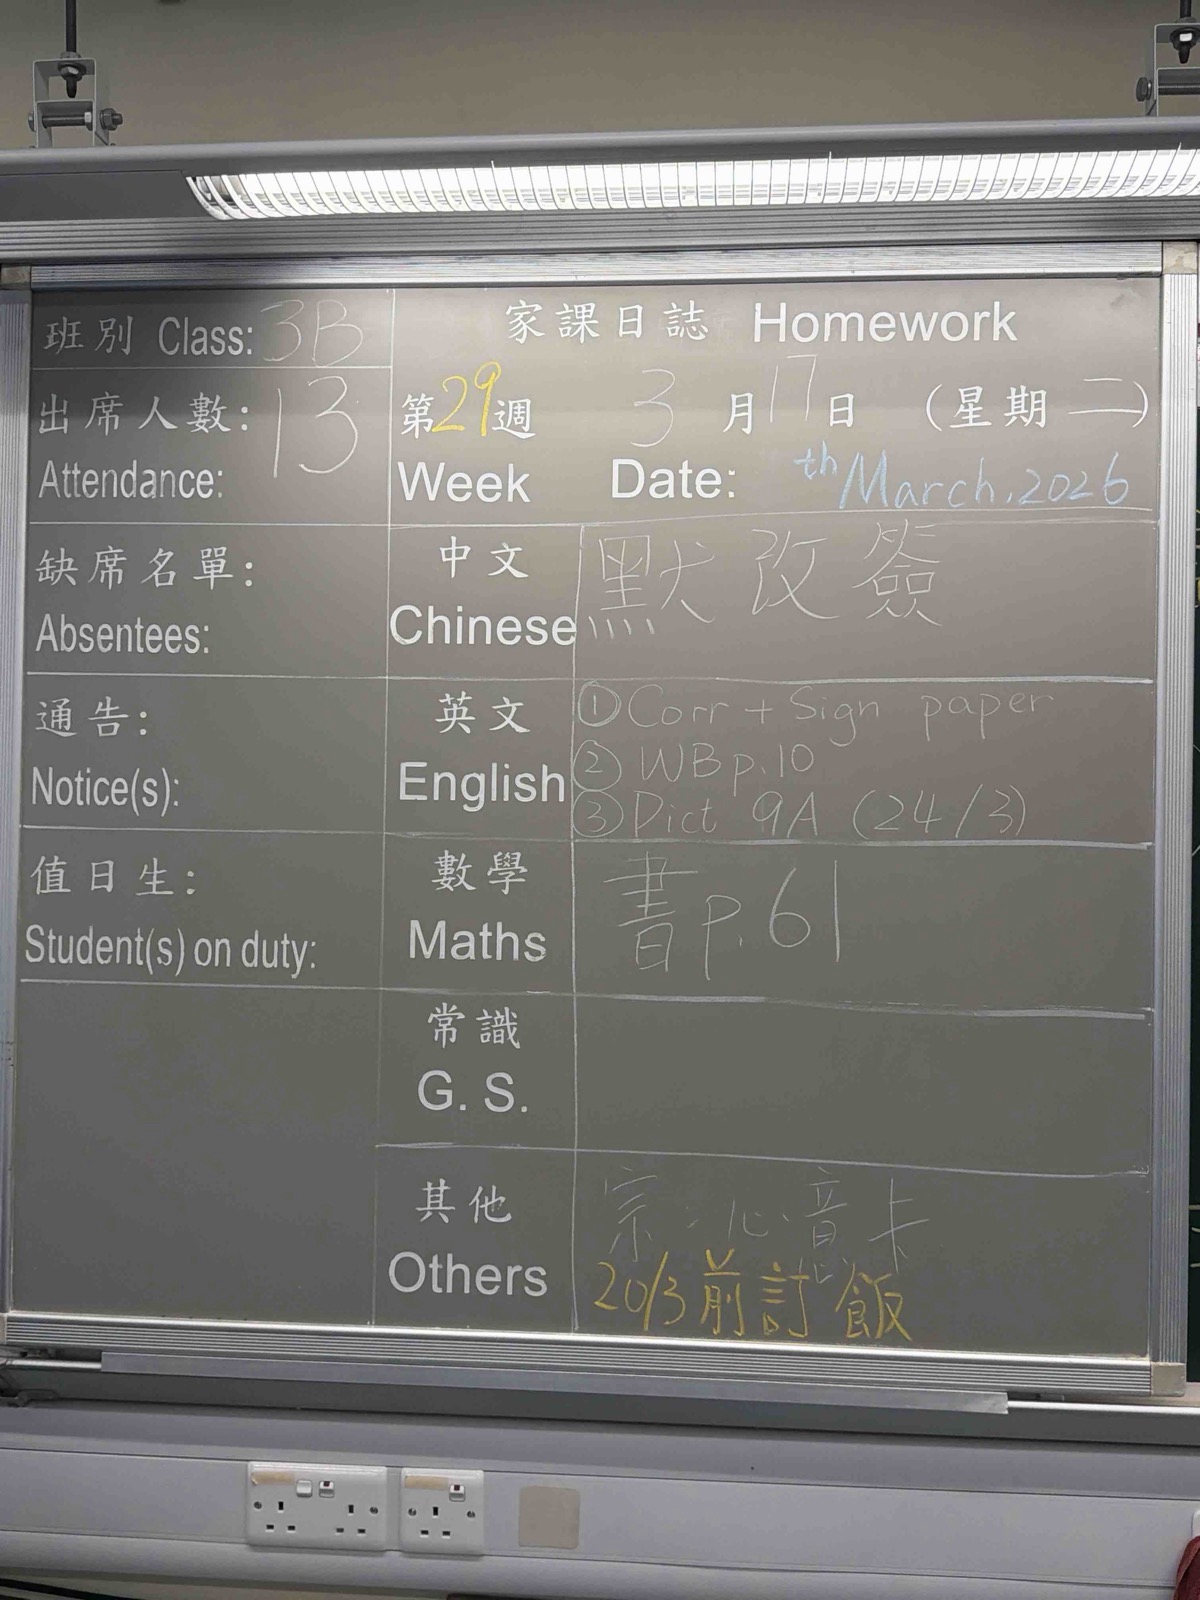 班別 Class: 3B
出席人數: 13
Attendance:
缺席名單:
Absentees:
通告:
Notice(s):
值日生:
Student(s) on duty:
家課日誌 Homework
第29週 3月17日 (星期二)
Week Date: th March, 2026
中文
Chinese
默改簽
英文
English
①Corr + Sign paper
②WB p.10
③Dict 9A (24/3)
數學
Maths
書p.61
常識
G. S.
其他
Others
宗:心意卡
20/3前訂飯